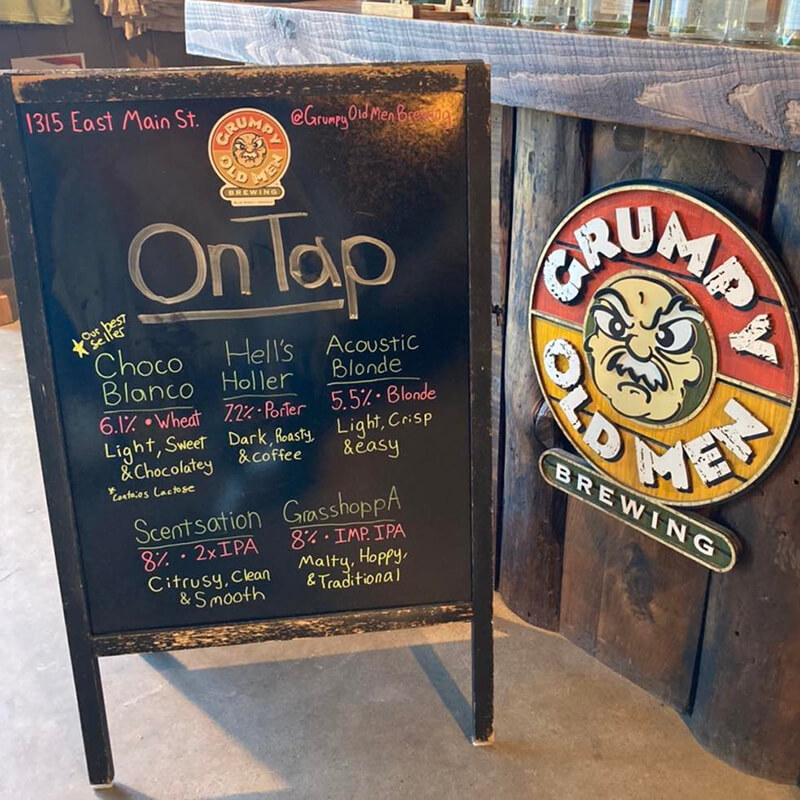 1315 East Main St.
@GrumpyOldMenBrewing
GRUMPY
OLD MEN
BREWING
On Tap
Our best
seller
Choco
Blanco
6.1% • Wheat
Light, Sweet
& Chocolatey
*Contains Lactose
Hell's
Holler
7.2% • Porter
Dark, Roasty,
& Coffee
Acoustic
Blonde
5.5% • Blonde
Light, Crisp
& easy
Scentsation
8% • 2xIPA
Citrusy, Clean
& Smooth
GrasshoppA
8% • IMP. IPA
Malty, Hoppy,
& Traditional
GRUMPY
OLD MEN
BREWING